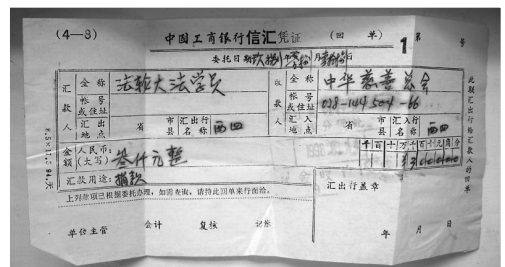 (4—3) 中国工商银行信汇凭证 (回 单) 1 第 号
委托日期 年 月 日
汇款人 全称 法轮大法学员 收款人 全称 中华慈善总会
帐号或住址 帐号或住址 028-144504-66
汇出地点 省 市县 汇出行名称 西四 汇入地点 省 市县 汇入行名称 西四
金额 人民币:(大写) 叁仟元整 千百十万千百十元角分
汇款用途: 捐款
上列款项已根据委托办理,如需查询,请持此回单来行面洽。 汇出行盖章
单位主管 会计 复核 记帐 年 月 日
此联汇出行给汇款人的回单